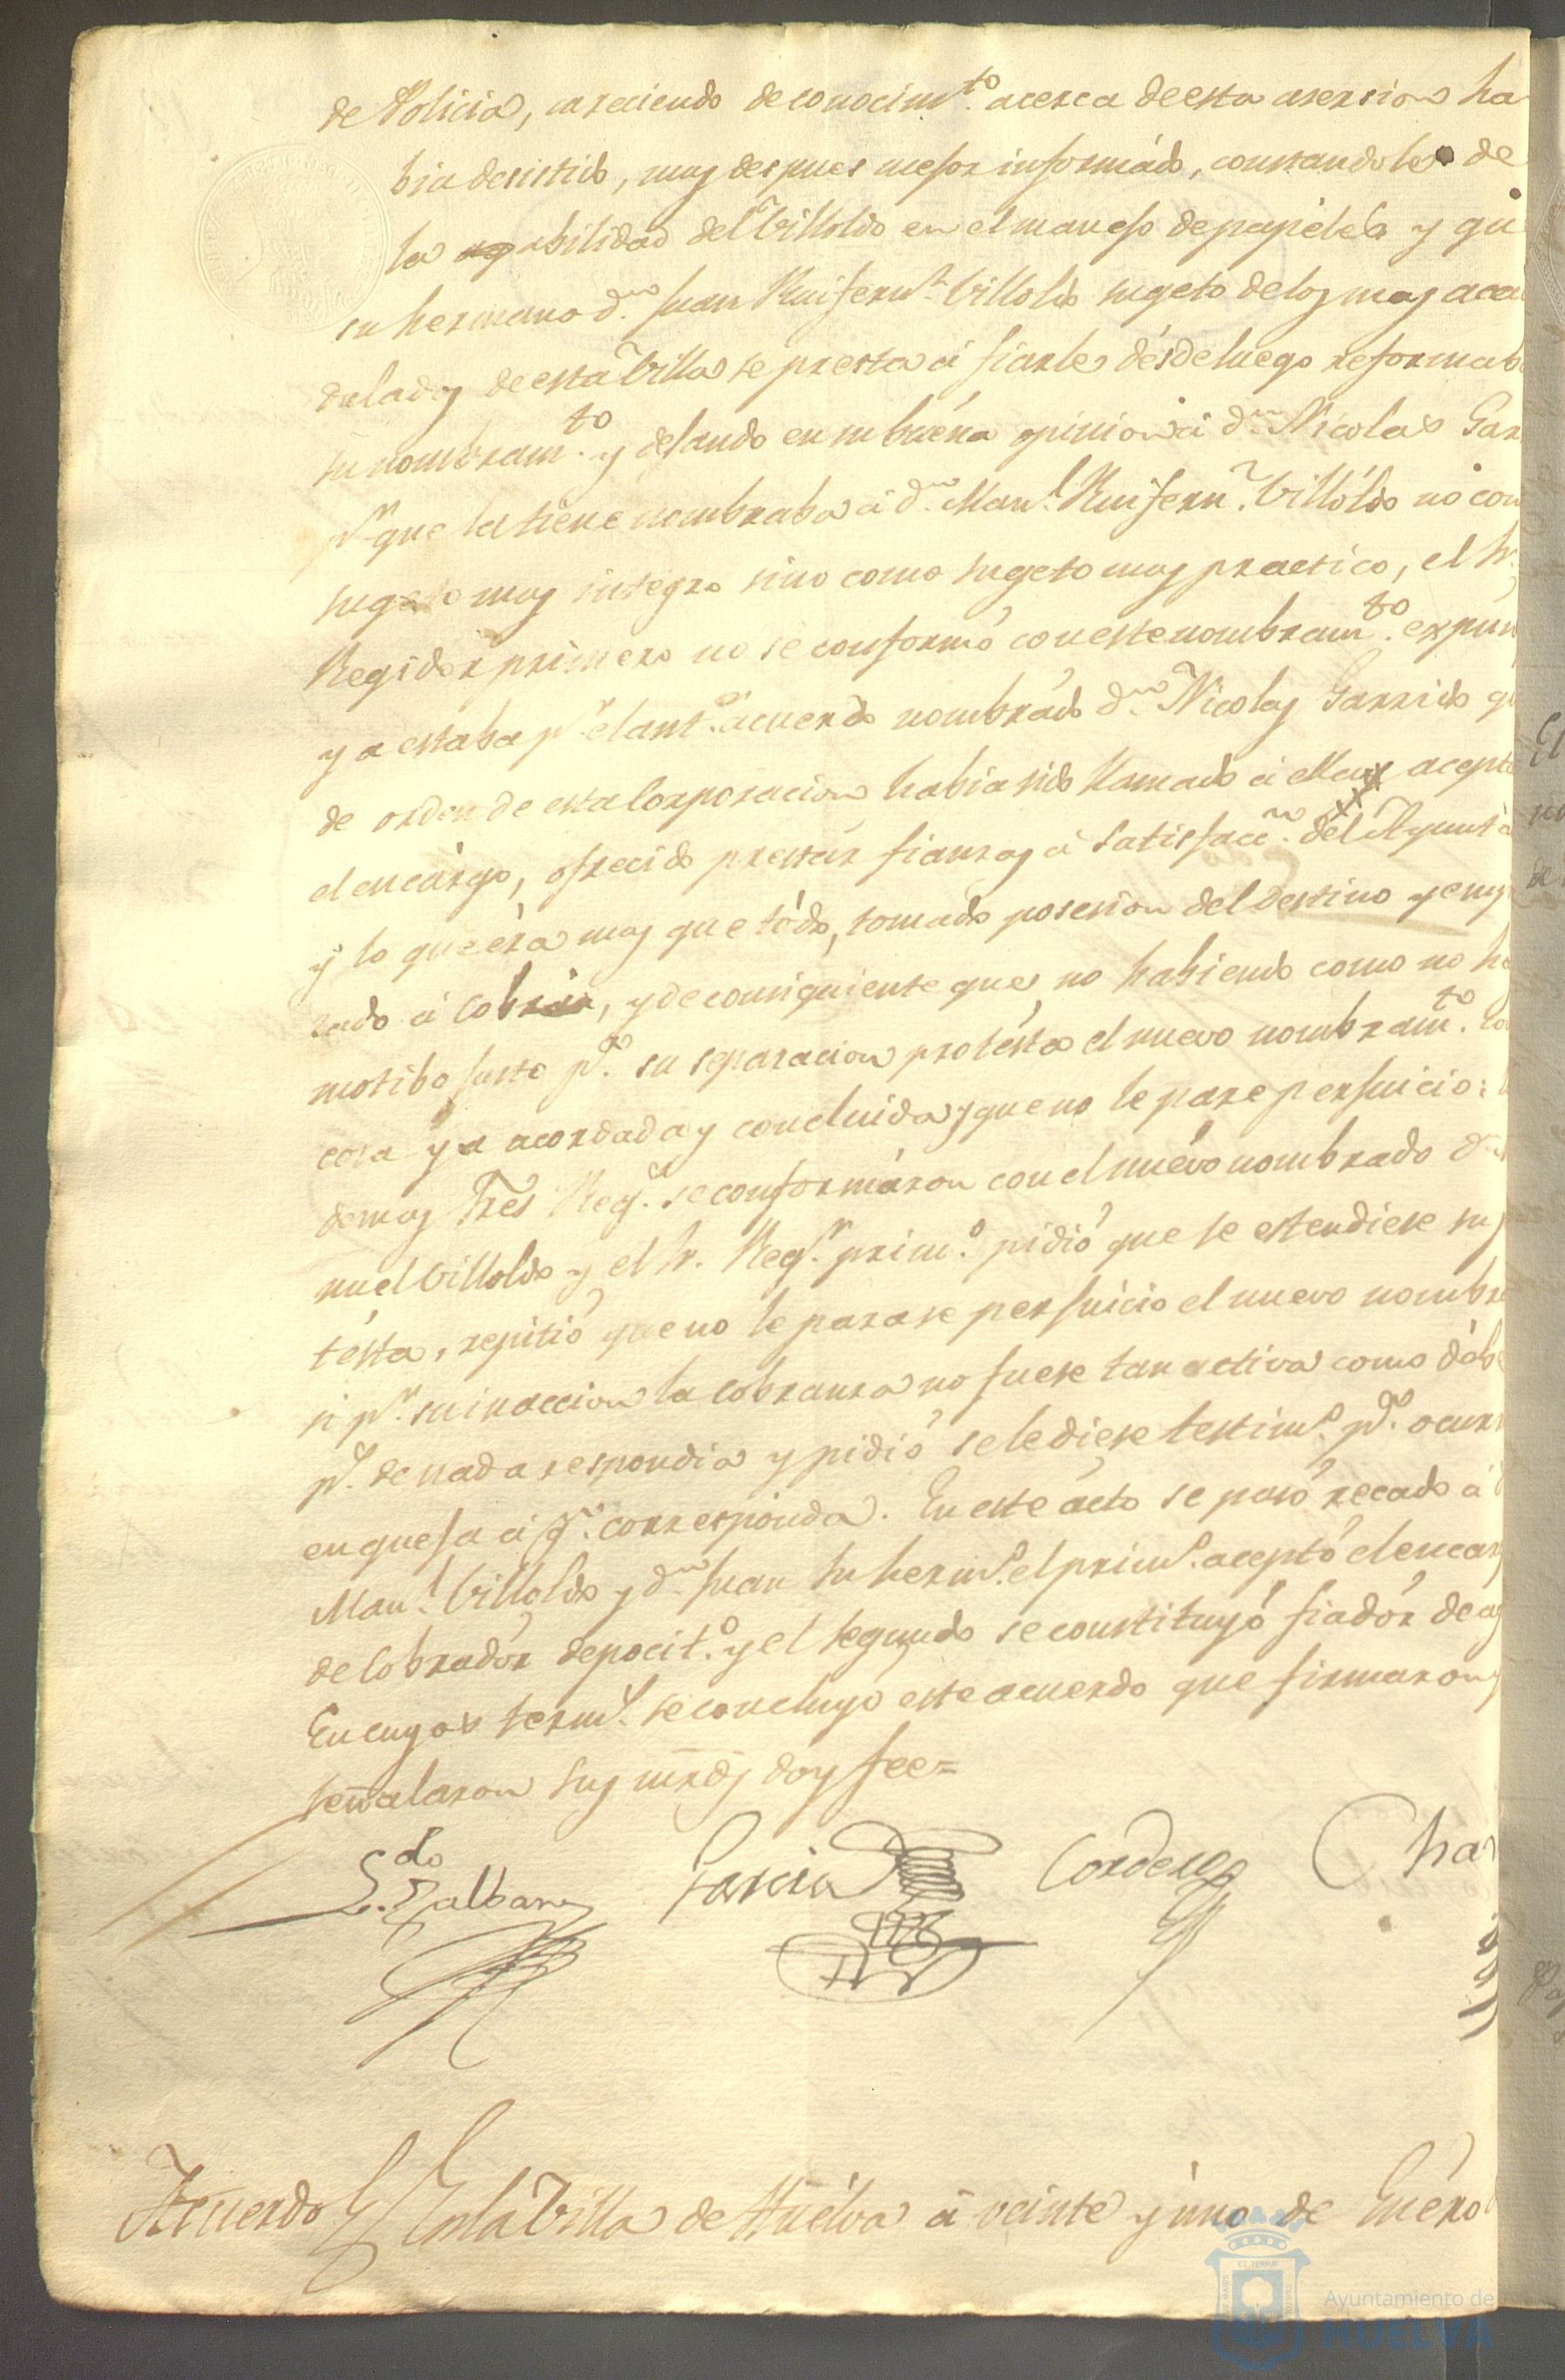 de Policia, careciendo de conocim.to acerca de esta asersion ha
bia desistido, mas despues mejor informádo, constandole de
la abilidad del Villoldo en el manejo de papéles y qu
su hermano d.n Juan Ruifern.z Villoldo sugeto de los mas acau
dalados de esta Villa se presta á fiarle désdeluego reformab
su nombram.to y dejando en su buéna opinion á d.n Nicolas Gar
p.r que la tiene nombraba á d.n Man.l Ruifern.z Villóldo no com
sugeto mas integro sino como sugeto mas practico, el Sr.
Regidor primero no se conformó con este nombram.to expus
ya estaba p.r el ant.or acuerdo nombrádo d.n Nicolas Garrido q
de orden de esta Corporacion habia sido llamado á ella acepta
el encárgo, ofrecido prestár fianzas á satisfacc.n del Ayunt
y lo que éra mas que tódo, tomado posesion del destino y emp
zado á Cobrar, y de consiguiente que no habiendo como no ha
motibo justo p.a su separacion protésta el nuevo nombram.to Co
cosa ya acordada y concluida y que no le pare perjuicio:
demas Tres Reg.s se conformáron con el nuévo nombrado d.n
nuel Villoldo y el Sr. Reg.r prim.o pidió que se estendiese su p
tésta, repitió que no le parase perjuicio el nuevo nombra
si p.r su inaccion la cobranza no fuese tan activa como débe
p.s de nada respondia y pidió se le diese testim.o p.a ocurr
en queja á q.n corresponda. En este ácto se pasó recado á d
Man.l Villoldo y d.n Juan su herm.o el prim.o aceptó el encarg
de Cobradór deposit.o y el segundo se constituyó fiadór de
En cuyos term.s se concluyó este acuerdo que firmaron y
señalaron sus mrds doy fee=
L.do Zalban
Garcia
Cordero
Cha
Acuerdo En la Villa de Huélva á veinte y uno de Enéro
Ayuntamiento de
HUELVA